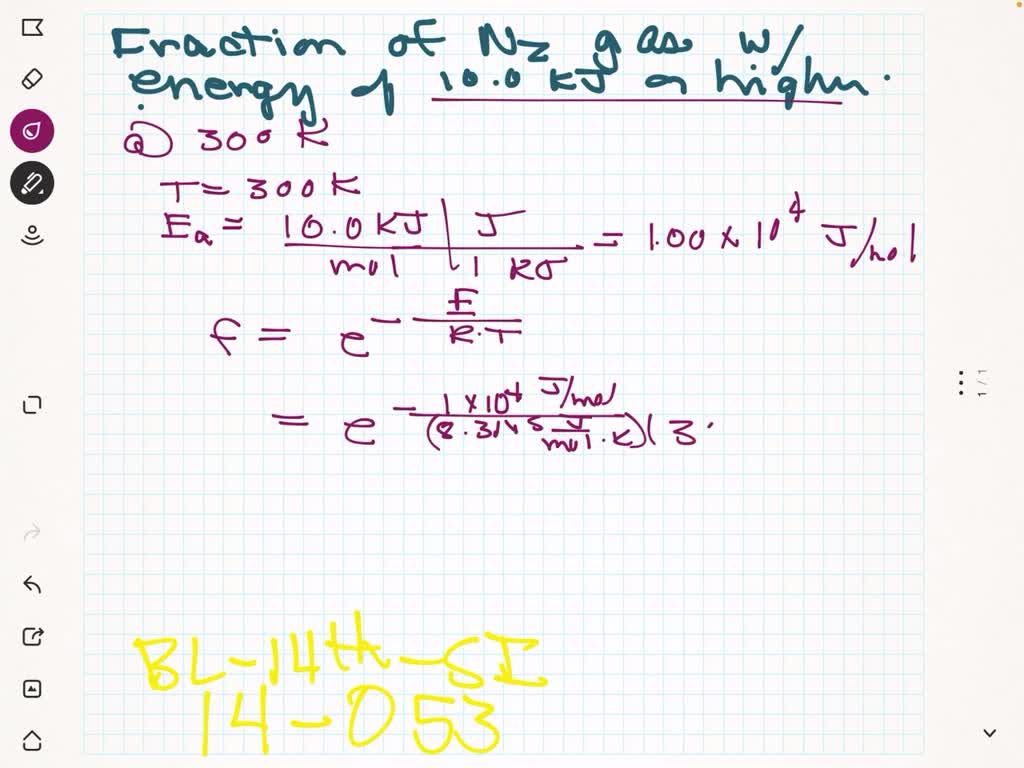 Fraction of N2 gas w/
energy of 10.0 KJ or higher.
a) 300 K
T = 300 K
Ea = 10.0 KJ / mol | J / 1 KJ = 1.00 × 10^4 J/mol
f = e^-E/R·T
= e^-1 × 10^4 J/mol / (8.3145 J/mol·K)(3
BL-14th-SI
14-053
1/1